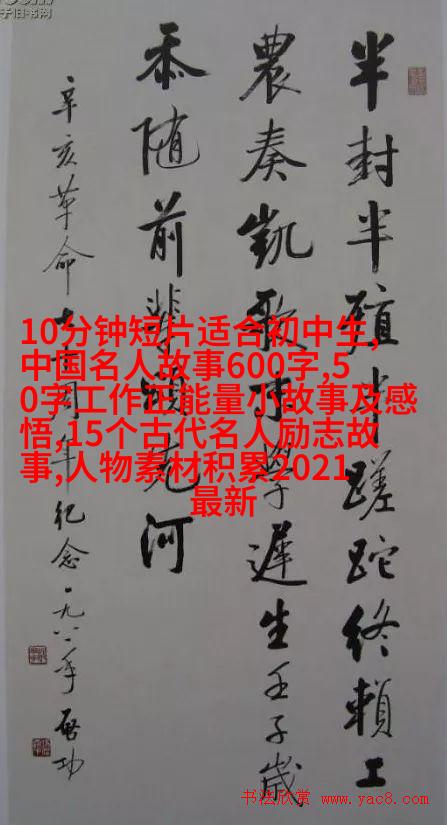 子旧书网
半封半殖半蹉跎终賴工
農奏凱歌學遲生壬子歲
忝随前輩河
辛亥革命七十周年紀念一九八一年啓功
10分钟短片适合初中生,
中国名人故事600字,5
0字工作正能量小故事及感
悟,15个古代名人励志故
事,人物素材积累2021
最新
书法欣赏 www.yac8.com